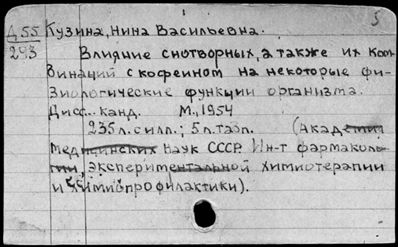 5
Д 55 Кузина, Нина Васильевна.
293
Влияние снотворных, а также их ком-
бинаций с кофеином на некоторые фи-
зиологические функции организма.
Дисс. канд. М., 1954
235 л. с илл.; 5 л. табл. (Академия
медицинских наук СССР. Ин-т фармаколо-
гии, экспериментальной химиотерапии
и химиопрофилактики).